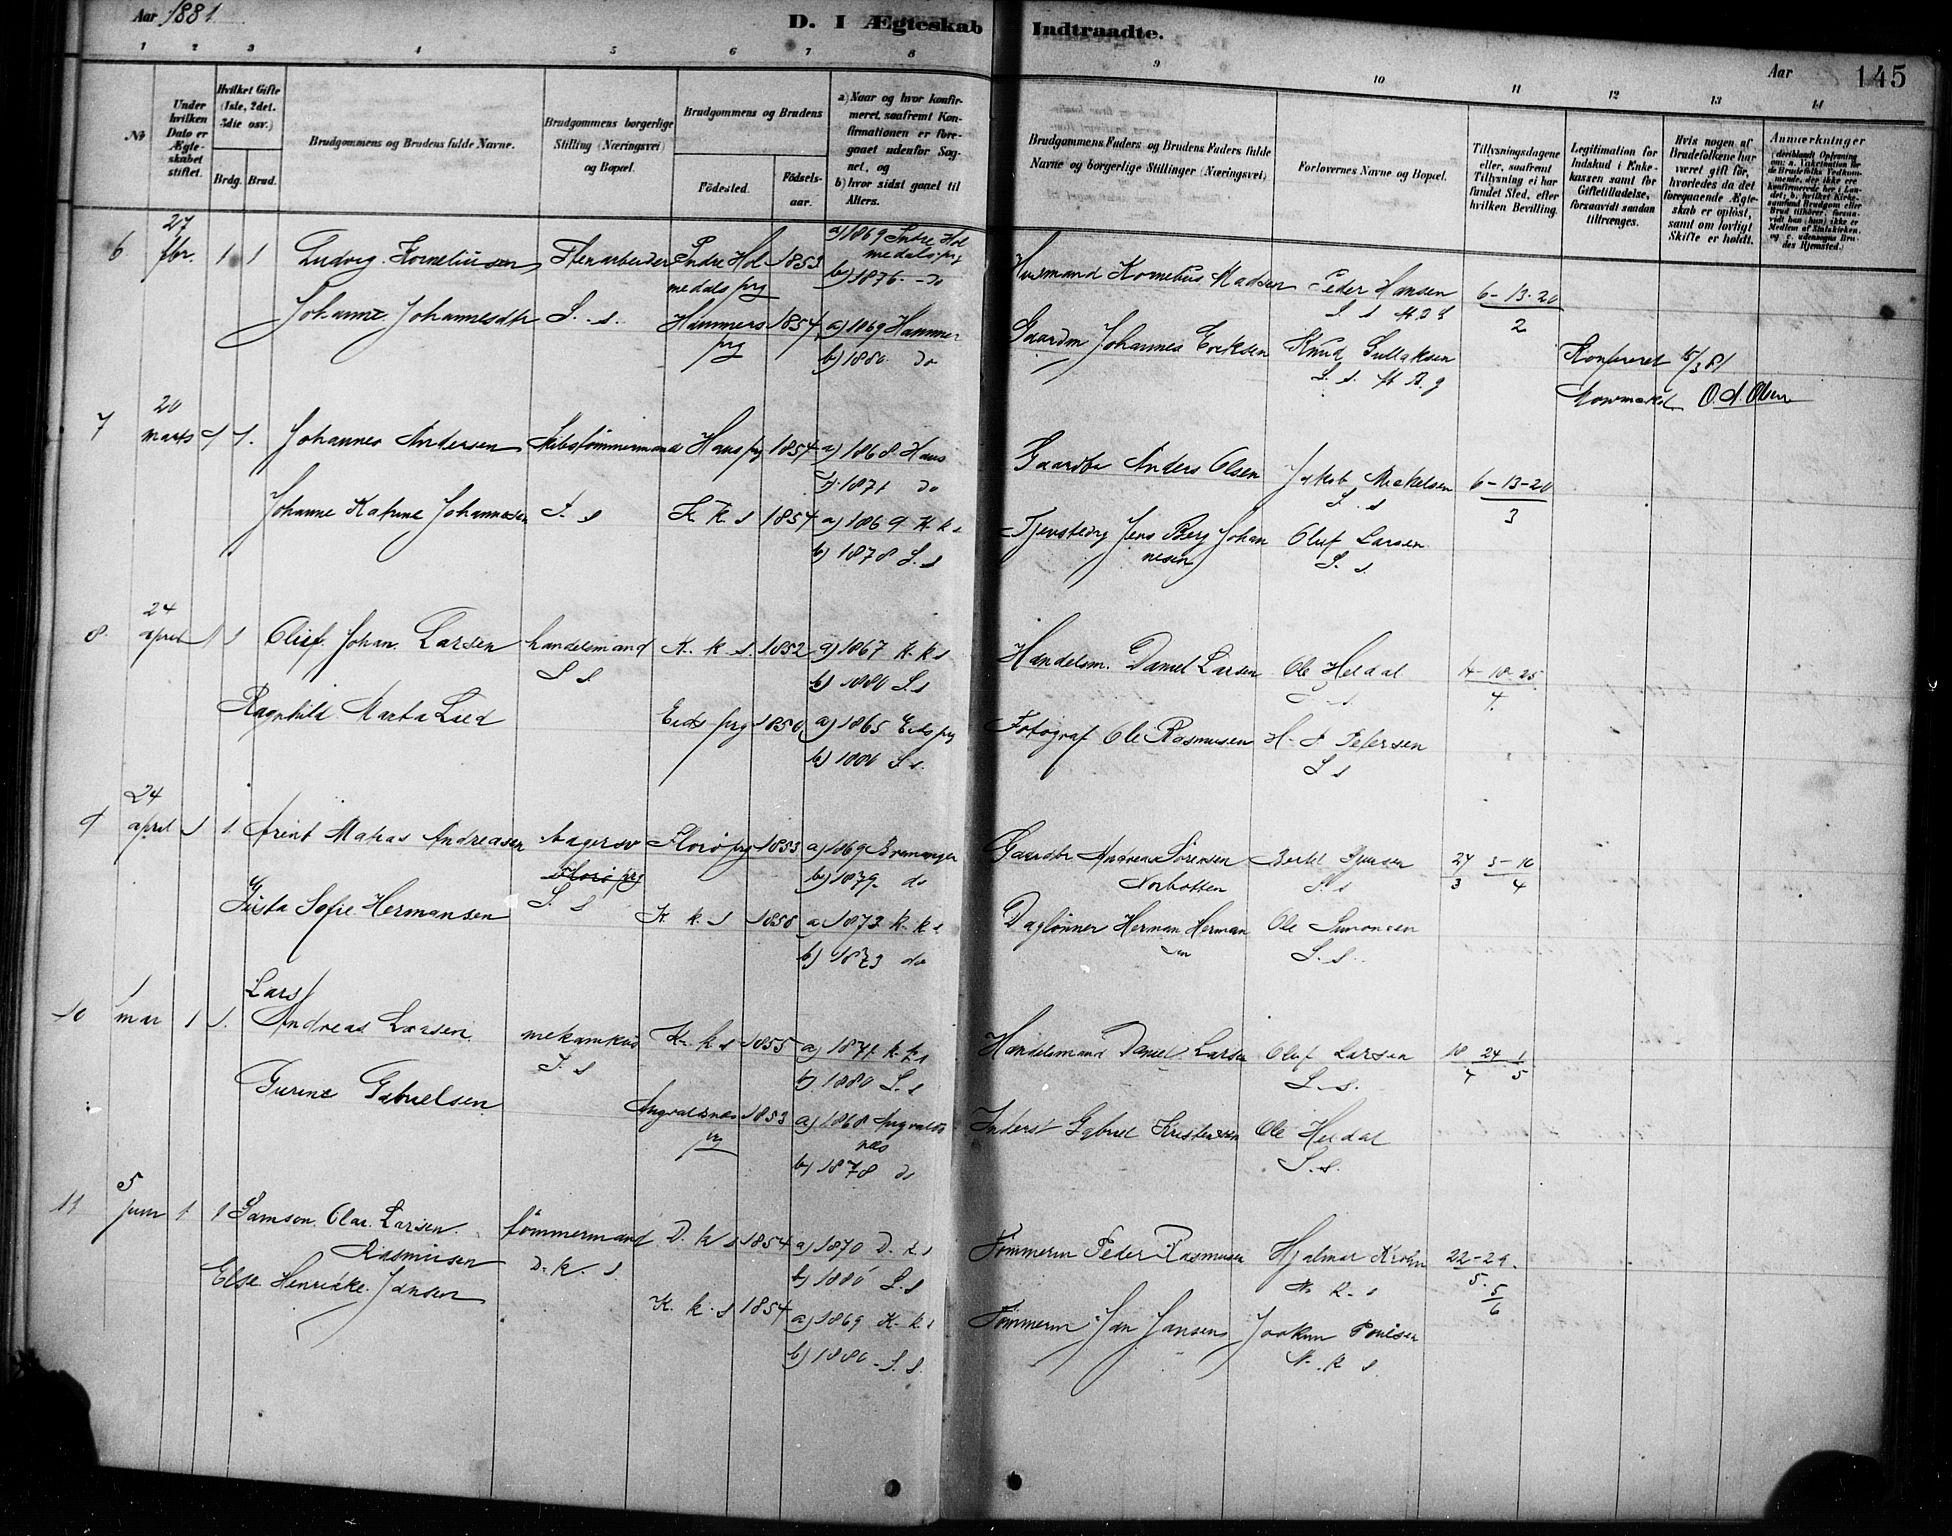 Aar 1881
D. I Ægteskab Indtraadte.
Aar 145
1 2 3 4 5 6 7 8 9 10 11 12 13 14
No
Under hvilken Dato er Ægteskabet stiftet.
Hvilket Gifte (1ste, 2det. 3die osv.)
Brdg. Brud.
Brudgommens og Brudens fulde Navne.
Brudgommens borgerlige Stilling (Næringsvei) og Bopæl.
Brudgommens og Brudens
Födested.
Födsels-aar.
a) Naar og hvor konfirmeret, saafremt Konfirmationen er foregaaet udenfor Sognet, og
b) hvor sidst gaaet til Alters.
Brudgommens Faders og Brudens Faders fulde Navne og borgerlige Stillinger (Næringsvei)
Forlovernes Navne og Bopæl.
Tillysningsdagene eller, saafremt Tillysning ei har fundet Sted, efter hvilken Bevilling.
Legitimation for Indskud i Enkekassen samt for Giftetilladelse, forsaavidt saadan tiltrænges.
Hvis nogen af Brudefolkene har været gift før, hvorledes da det foregaaende Ægteskab er opløst, samt om lovligt Skifte er holdt.
Anmærkninger
6 27 fbr. 1 1 Ludvig Korneliusen Stenarbeider Indre Hol 1853 a) 1869 Indre Hol
medals prg medals prg
b) 1876 do
Husmand Kornelius Madsen Peder Hansen 6-13-20
2
Johanne Johannesdtr S. s. Hammers 1854 a) 1869 Hammer
prg b) 1880 do
Gaardm Johannes Eriksen Knud Sullaksen
Konfereret 15/3 81
O. A. Olsen
7 20 marts 1 1. Johannes Andersen Skibstömmermand Haus prg 1854 a) 1868 Haus
b) 1871 do
Gaardbr Anders Olsen Jakob Mickelsen 6-13-20
S. s 3
Johanne Katrine Johannesen S. s K. k. s 1854 a) 1869 K. k s
b) 1878 S. s
Jens Berg Johan Oluf Larsen
nesen S. s.
8. 24 april 1 1 Oluf Johan Larsen handelsmand K. k. s. 1852 a) 1867 K. k s
S s. b) 1880 S. s
Handelsm. Daniel Larsen Ole Heldal 4-10-25
4
Ragnhild Marta Lied Eids prg 1850 a) 1865 Eids prg
b) 1880 S s.
Fotograf Ole Rasmusen H. J Petersen
S s
9 24 april 1 1. Arent Matias Andreasen bagersv Florö prg 1853 a) 1869 Bremanger
Florö prg b) 1879 do
S. s
Gaardbr Andreas Sörensen 27 3-10
Norbotten S. s 3 4
Gusta Sofie Hermansen K. k. s 1858 a) 1873 k. k s
b) 1873 do
Daglönner Herman Herman Ole Simonsen
sen S. s.
Lars
10 1 mai 1 1. Andreas Larsen mekanikus K. k s 1855 a) 1871 k. k s
S. s b) 1880 S. s
Handelsmand Daniel Larsen Oluf Larsen 10 24 1
S. s. 4 5
Gurine Gabrielsen Augvaldsnes 1853 a) 1868 Augvalds
prg nes
b) 1878 do
Inderst Gabriel Kristensen Ole Heldal
S. s.
11 5 juni 1 1 Samson Olai Larsen tömmermand D. k s 1854 a) 1870 D. k s
Rasmusen D. k. s. b) 1880 S. s
Tömmerm Peder Rasmusen Hjalmar Krohn 22-29.
N. k. s 5. 5
6
Else Henrikke Jansen K. k. s 1854 a) 1869 K. k s
b) 1880 S. s.
Tömmerm Jan Jansen Joakim Poulsen
N. k s